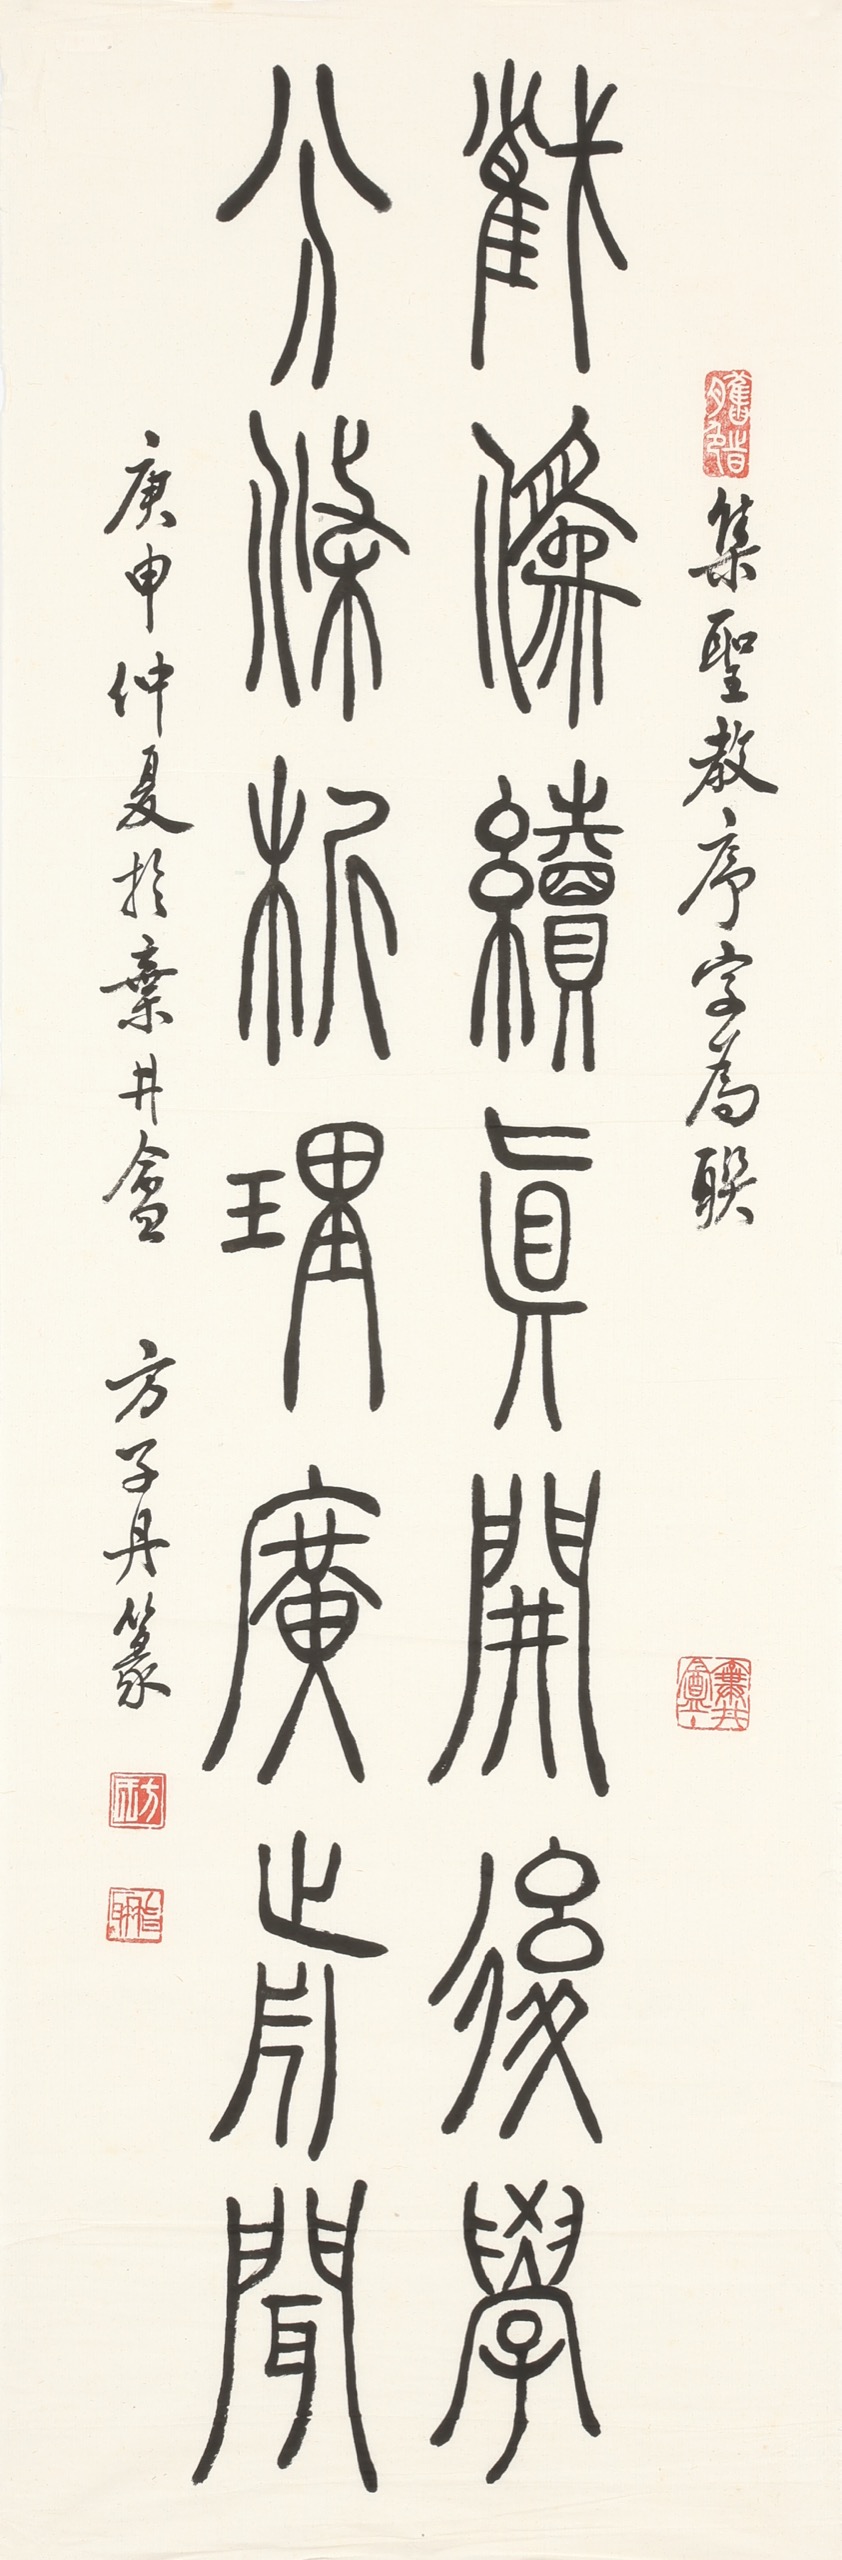 集聖教序字為聯
截偽續真開後學
分條析理廣前聞
庚申仲夏於棄井盦 方子丹篆